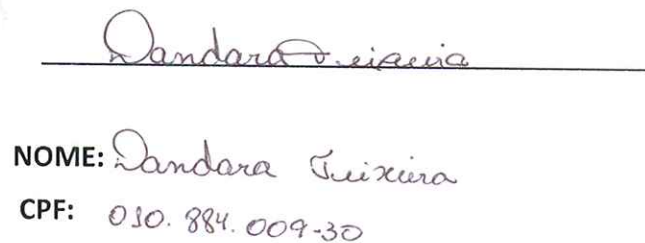 Dandara Teixeira
NOME: Dandara Teixeira
CPF: 010.884.009-30